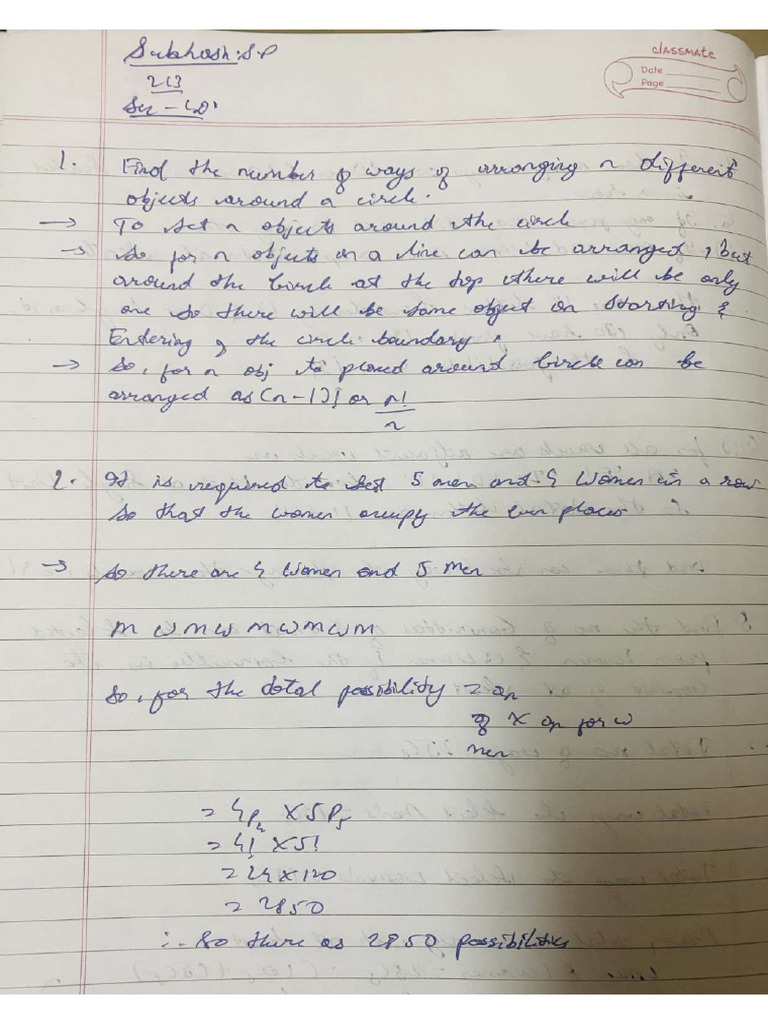 Subhash.S.P
213
classmate
Date
Page
1. Find the number of ways of arranging n different
objects around a circle.
→ To Set n objects around the circle
→ So for n objects in a line can be arranged, but
around the circle at the top there will be only
one so there will be same object on Starting &
Entering of the circle boundary.
→ So, for n obj to placed around circle can be
arranged as (n-1)! or n!/n
2. It is required to set 5 men and 4 Women in a row
So that the women occupy the even places
→ So there are 4 Women and 5 Men
M W M W M W M W M
So, for the total possibility =
of X for W
Men
= 4P4 X 5P5
= 4! X 5!
= 24 X 120
= 2850
∴ So there as 2850 possibilities